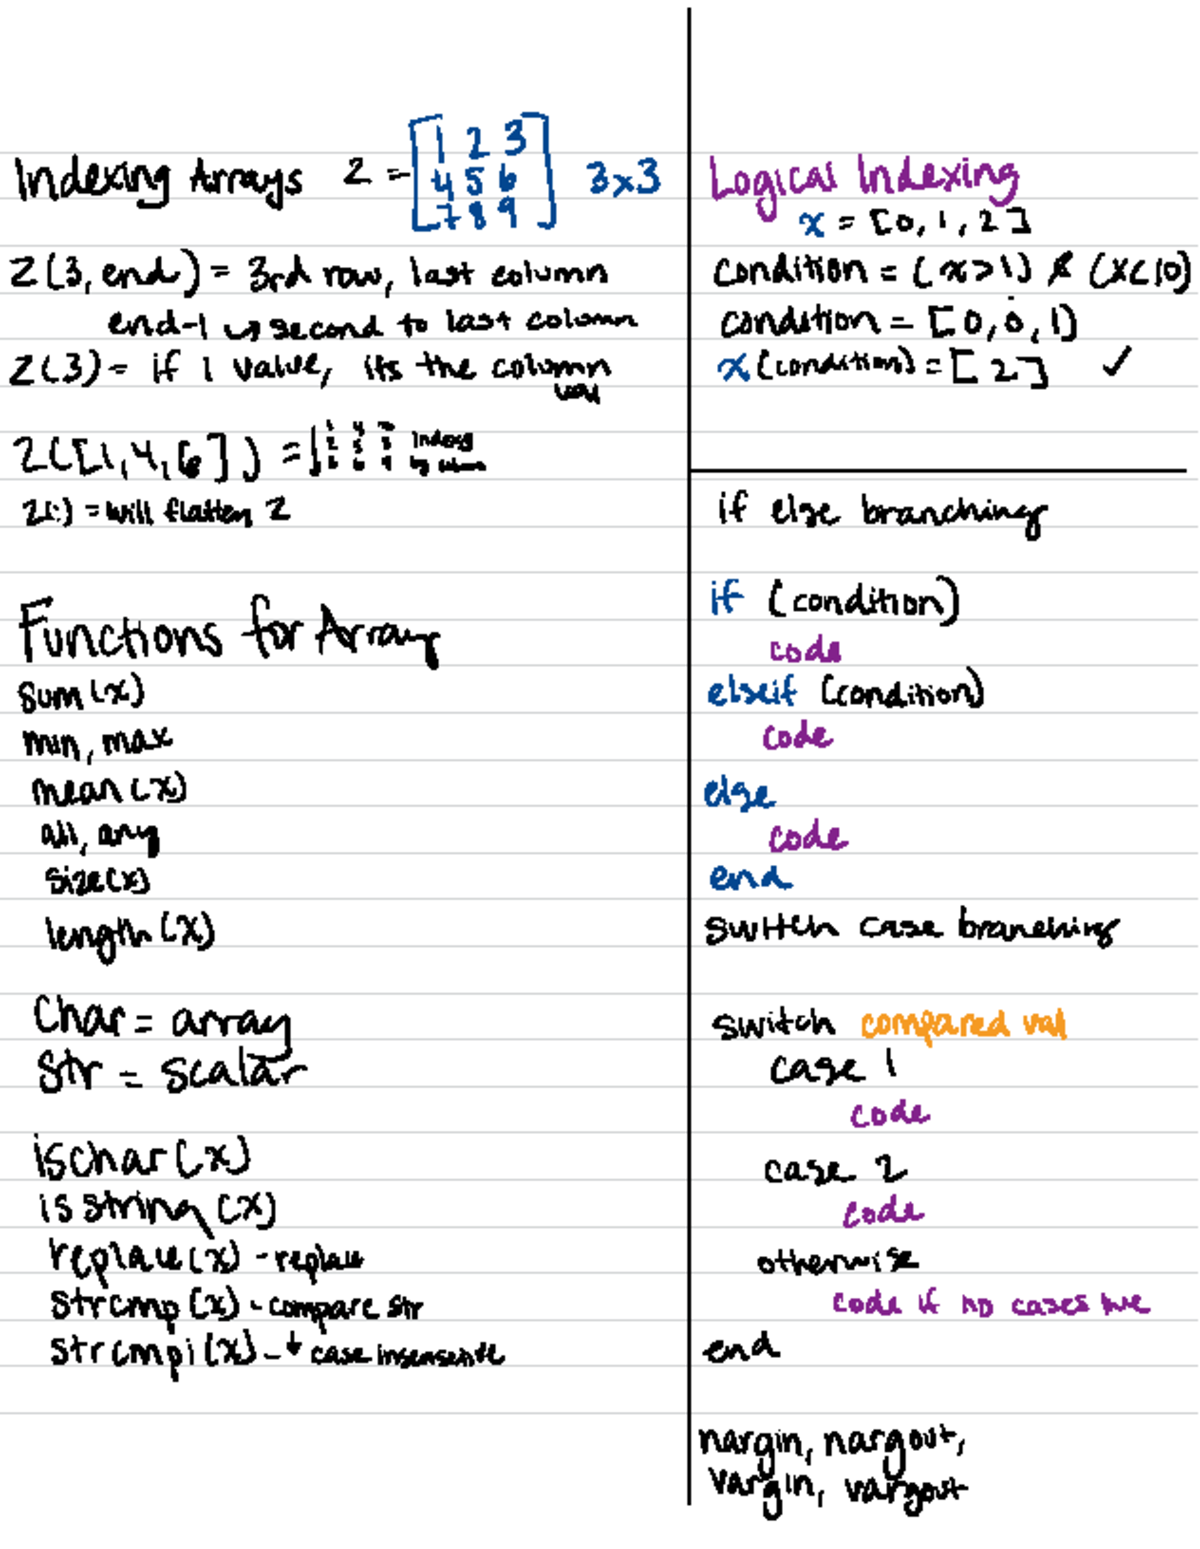 Indexing Arrays Z = [1 2 3
4 5 6
7 8 9] 3x3
Z(3, end) = 3rd row, last column
end-1 ↳ second to last column
Z(3) = if 1 value, its the column
val
Z([1,4,6]) = [1 4 7
2 5 8
3 6 9 Indexes
by column
Z(:) = will flatten Z
Functions for Array
sum(x)
min, max
mean(x)
all, any
size(x)
length(x)
Char = array
Str = scalar
ischar(x)
isstring(x)
replace(x) - replace
strcmp(x) - compare str
strcmpi(x) - ↓ case insensitive
Logical Indexing
x = [0, 1, 2]
condition = (x>1) & (x<10)
condition = [0, 0, 1]
x(condition) = [2] ✓
if else branching
if (condition)
code
elseif (condition)
code
else
code
end
switch case branching
switch compared val
case 1
code
case 2
code
otherwise
code if no cases true
end
nargin, nargout,
vargin, vargout